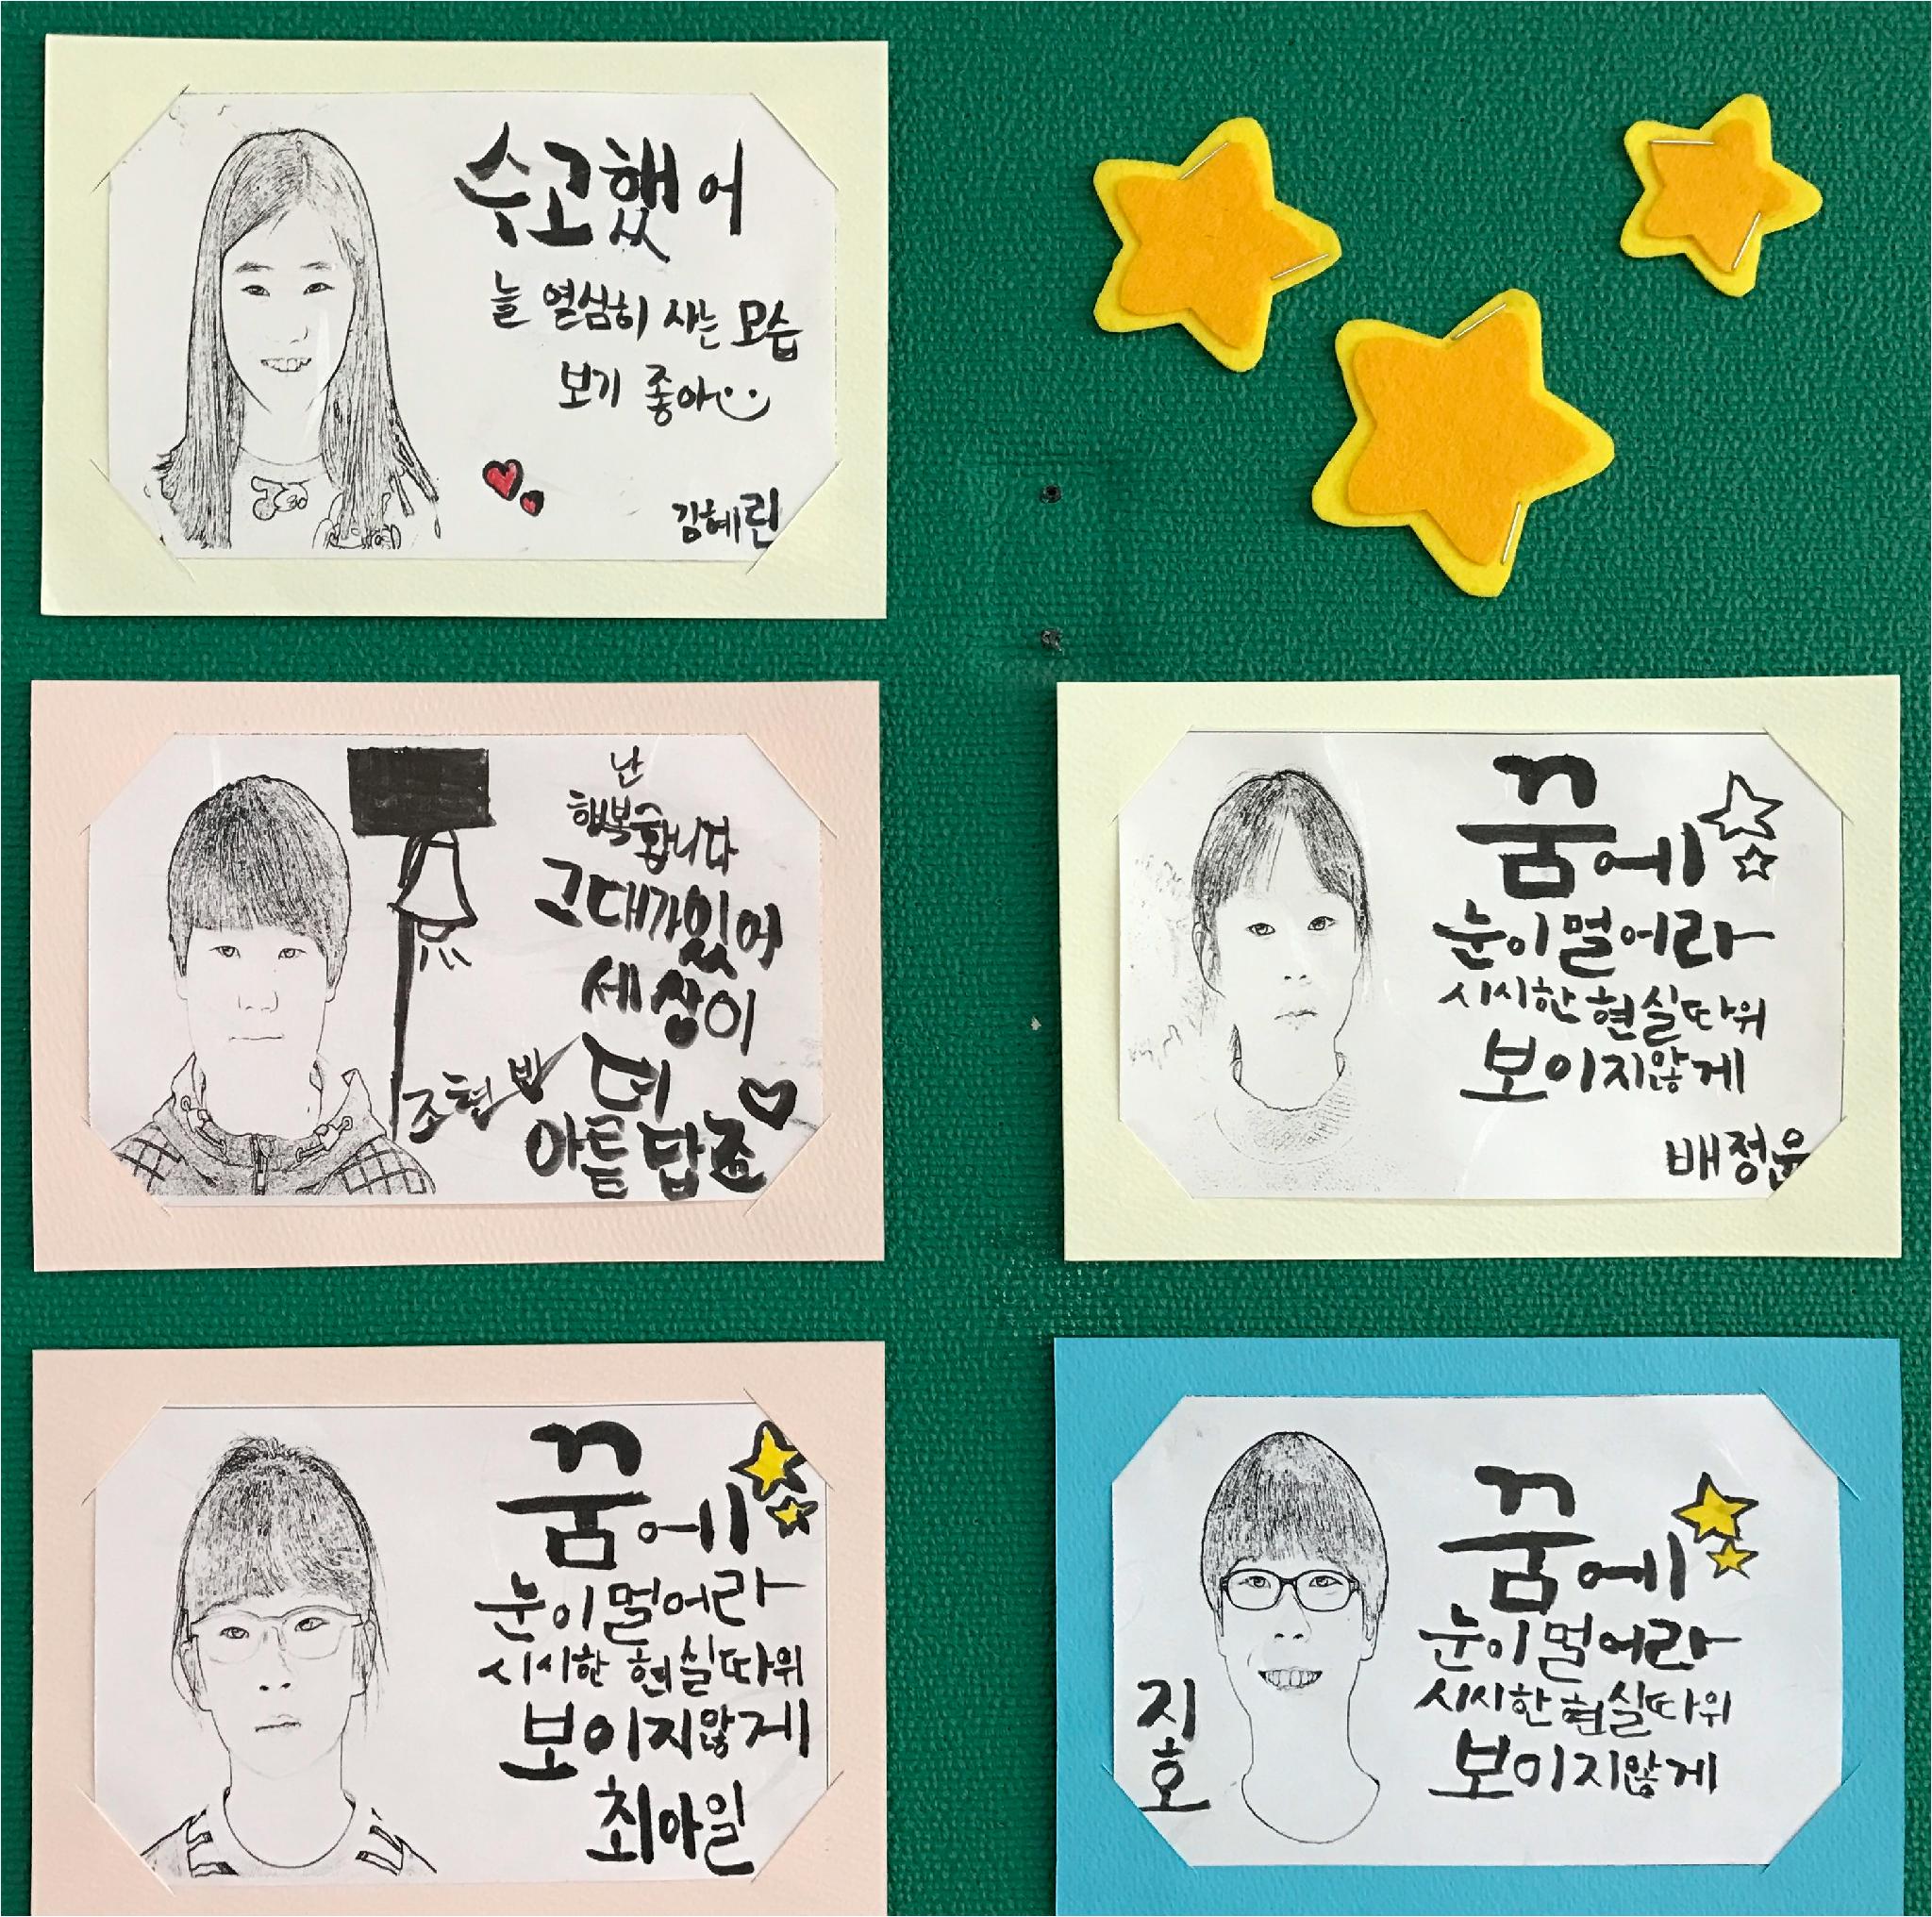 수고했어
늘 열심히 사는 모습
보기 좋아
김혜린
난
행복합니다
그대가있어
세상이
더
아름답죠
조현빈
꿈에
눈이멀어라
시시한 현실따위
보이지않게
배정윤
꿈에
눈이멀어라
시시한 현실따위
보이지않게
최아일
꿈에
눈이멀어라
시시한 현실따위
보이지않게
지호